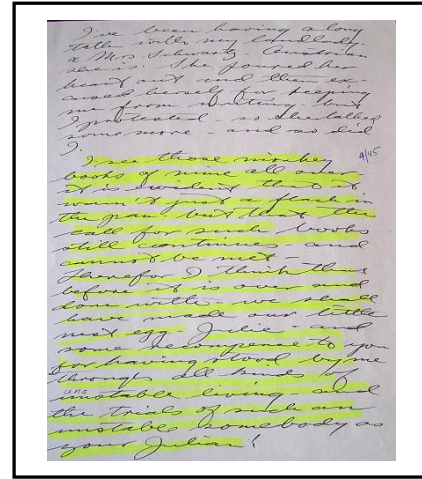 I've been having a long
talk with my landlady.
a Mrs. Schwartz - Austrian
she is. She poured her
heart out and then ex-
cused herself for keeping
me from writing - but
I protested - so she talked
some more - and so did
I.
4/45
I see those monkey
books of mine all over
it is evident that it
wasn't just a flash in
the pan but that the
call for such books
still continues and
cannot be met -
Therefor I think that
before it is over and
done with - we shall
have made our little
nest egg Julie and
some recompense to you
for having stood by me
through all kinds of
unstable living and
the trials of such an
unstable somebody as
your Julian!